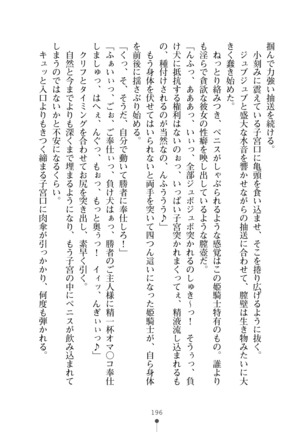 掴んで力強い抽送を続ける。
小刻みに震えている子宮口に亀頭を食い込ませ、そこを捲り広げるように抜く。
ジュブジュブと盛大な水音を響かせながらの抽送に合わせて、膣壁は生き物みたいに大
きく蠢き始めた。
ねっとり絡みつき、ペニスがしゃぶられるような感覚はこの姫騎士特有のもの。誰より
も淫らで貪欲な彼女の性癖を物語っているような膣壺だ。
「んふっ、あああっ、いぃっ、全部ジュボジュボ突かれるのしゅき！　そうぅっ、負
け犬に抵抗する権利はないのぉっ、いっぱい子宮突かれまくってぇ、精液流し込まれるも
の、種付けされるのが当然なの、んふううう♪」
もう身体を伏せてはいられないと両手を突いて四つん這いになった姫騎士が、自ら身体
を前後に揺さぶり始める。
「くっ、そ、そうだ、自分で動いて勝者に奉仕しろ！」
「ふぁぃぃっ、ごぉ、ご奉仕ぃっ、負け犬はぁっ、勝者のご主人様に精一杯オマ〇コ奉仕
しましゅっ、はへぇ、んへっ、もぉっ、もっと奥っっ！　イィッ、んぎぃぃっ♪」
クリフとタイミングを合わせてお尻を突き出し、素早く引く。
自然と今までよりも深くまで埋まるようになり、もう子宮の中にペニスが飲み込まれて
しまうのではないかと不安になるくらいだ。
キュッと入口よりもきつく締まる子宮口に肉傘が引っかかり、何度も弾かれる。
196